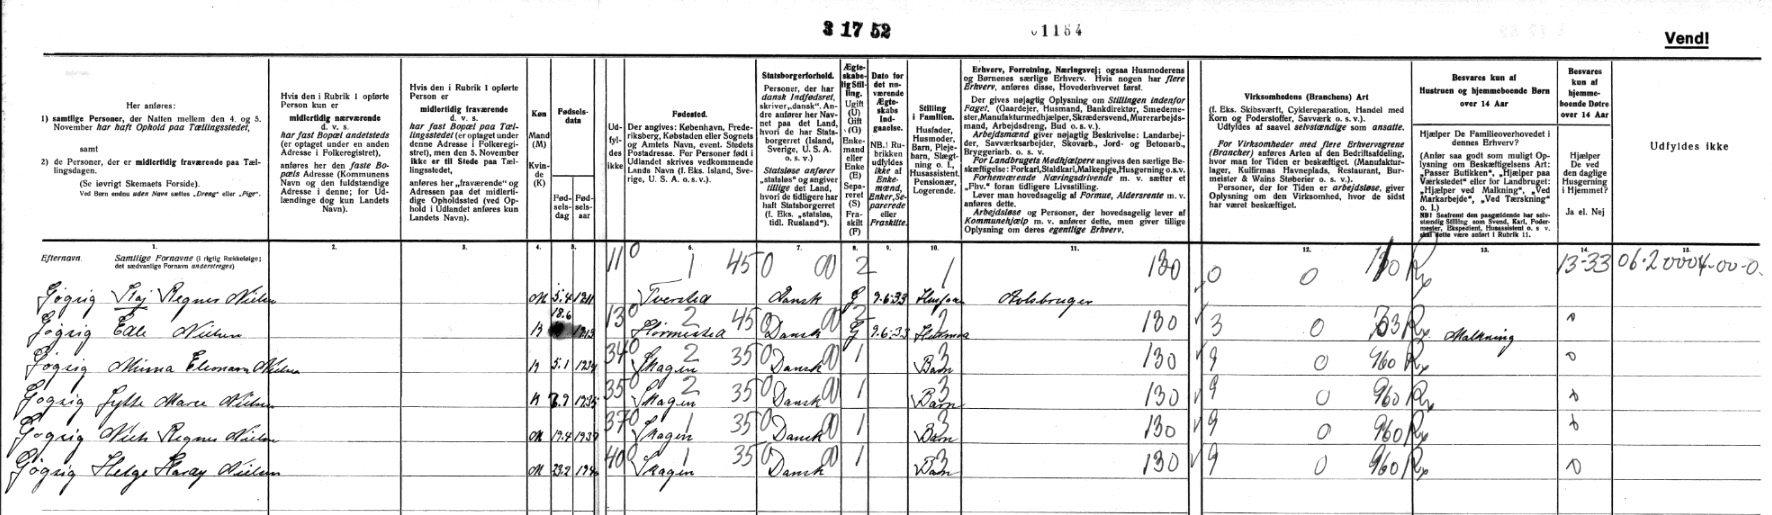 3 17 52
01184
Vend!
Her anføres:
1) samtlige Personer, der Natten mellem den 4. og 5.
November har haft Ophold paa Tællingsstedet,
samt
2) de Personer, der er midlertidig fraværende paa Tællingsdagen.
(Se iøvrigt Skemaets Forside).
Ved Børn endnu uden Navn sættes „Dreng“ eller „Pige“.
Hvis den i Rubrik 1 opførte
Person kun er
midlertidig nærværende
d. v. s.
har fast Bopæl andetsteds
(er optaget under en anden
Adresse i Folkeregistret),
anføres her den faste Bopæls
Adresse (Kommunens
Navn og den fuldstændige
Adresse i denne; for Udlændinge
dog kun Landets
Navn).
Hvis den i Rubrik 1 opførte
Person er
midlertidig fraværende
d. v. s.
har fast Bopæl paa Tællingsstedet
(er optaget under
denne Adresse i Folkeregistret),
men den 5. November
ikke er til Stede paa Tællingsstedet,
anføres her „fraværende“ og
Adressen paa det midlertidige
Opholdssted (ved Ophold
i Udlandet anføres kun
Landets Navn).
Køn
Mand
(M)
Kvinde
(K)
Fødselsdata
Fødselsdag
Fødselsaar
Udfyldes
ikke
Fødested.
Der angives: København, Frederiksberg,
Købstaden eller Sognets
og Amtets Navn, event. Stedets
Postadresse. For Personer født i
Udlandet skrives vedkommende
Lands Navn (f. Eks. Island, Sverige,
U. S. A. o. s. v.).
Statsborgerforhold.
Personer, der har
dansk Indfødsret,
skriver „dansk“. Andre
anfører her Navnet
paa det Land,
hvori de har Statsborgerret
(Island,
Sverige, U. S. A.
o. s. v.)
Statsløse anfører
„statsløs“ og angiver
tillige det Land,
hvori de tidligere har
haft Statsborgerret
(f. Eks. „statsløs,
tidl. Rusland“).
Ægteskabelig
Stilling.
Ugift
(U)
Gift
(G)
Enkemand
eller
Enke
(E)
Separeret
(S)
Fraskilt
(F)
Dato for
det nuværende
Ægteskabs
Indgaaelse.
NB.! Rubrikken
udfyldes
ikke af
Enkemænd,
Enker, Separerede
eller
Fraskilte.
Stilling
i Familien.
Husfader,
Husmoder,
Barn, Plejebarn,
Slægtning
o. l.,
Husassistent,
Pensionær,
Logerende.
Erhverv, Forretning, Næringsvej; ogsaa Husmoderens
og Børnenes særlige Erhverv. Hvis nogen har flere
Erhverv, anføres disse, Hovederhvervet først.
Der gives nøjagtig Oplysning om Stillingen indenfor
Faget. (Gaardejer, Husmand, Bankdirektør, Smedemester,
Manufakturmedhjælper, Skrædersvend, Murerarbejdsmand,
Arbejdsdreng, Bud o. s. v.).
Arbejdsmænd giver nøjagtig Beskrivelse: Landarbejder,
Savværksarbejder, Skovarb., Jord- og Betonarb.,
Bryggeriarb. o. s. v.
For Landbrugets Medhjælpere angives den særlige Beskæftigelse:
Forkarl, Staldkarl, Malkepige, Husgerning o. s. v.
Forhenværende Næringsdrivende m. v. sætter et
„Fhv.“ foran tidligere Livsstilling.
Lever man hovedsagelig af Formue, Aldersrente m. v.
anføres dette.
Arbejdsløse og Personer, der hovedsagelig lever af
Kommunehjælp m. v. anfører dette, men giver tillige
Oplysning om deres egentlige Erhverv.
Virksomhedens (Branchens) Art
(f. Eks. Skibsværft, Cykdereparation, Handel med
Korn og Foderstoffer, Savværk o. s. v.).
Udfyldes af saavel selvstændige som ansatte.
For Virksomheder med flere Erhvervsgrene
(Brancher) anføres Arten af den Bedriftsafdeling,
hvor man for Tiden er beskæftiget. (Manufakturlager,
Kulfirmas Havneplads, Restaurant, Burmeister
& Wains Støberier o. s. v.).
Personer, der for Tiden er arbejdsløse, giver
Oplysning om den Virksomhed, hvor de sidst
har været beskæftiget.
Besvares kun af
Hustruen og hjemmeboende Børn
over 14 Aar
Hjælper De Familieoverhovedet i
dennes Erhverv?
(Anfør saa godt som muligt Oplysning
om Beskæftigelsens Art:
„Passer Butikken“, „Hjælper paa
Værkstedet“ eller for Landbruget:
„Hjælper ved Malkning“, „Ved
Markarbejde“, „Ved Tærskning“
o. l.)
NB! Saafremt den paagældende har selvstændig
Stilling som Svend, Karl, Fodermester,
Ekspedient, Husassistent o. s. v.
skal dette være anført i Rubrik 11.
Besvares
kun af
hjemmeboende
Døtre
over 14 Aar
Hjælper
De ved
den daglige
Husgerning
i Hjemmet?
Ja el. Nej
Udfyldes ikke
1. 2. 3. 4. 5. 6. 7. 8. 9. 10. 11. 12. 13. 14. 15.
Efternavn. Samtlige Fornavne (i rigtig Rækkefølge;
det sædvanlige Fornavn understreges)
110 1 45 0 00 2 1 130 0 0 130 Rx 13-33 06-20004-00-0
Gøgsig Kaj Regner Nielsen M 5.4 1911 Tversted Dansk G 9.6.33 Husfar Avlsbruger
130 2 45 0 00 2 2 130 3 0 33 Rx
Gøgsig Edle Nielsen K 18.6 1913 Hørmested Dansk G 9.6.33 Husmor Malkning 0
340 2 35 0 00 1 3 130 9 0 960 Rx
Gøgsig Minna Eleonora Nielsen K 5.1 1934 Skagen Dansk Barn 0
350 2 35 0 00 1 3 130 9 0 960 Rx
Gøgsig Jytte Marie Nielsen K 1935 Skagen Dansk Barn
370 1 35 0 00 1 3 130 9 0 960 Rx
Gøgsig Niels Regner Nielsen M 19.4 1937 Skagen Dansk Barn
400 1 35 0 00 1 3 130 9 0 960 Rx
Gøgsig Helge Nielsen M 23.2 1940 Skagen Dansk Barn 0